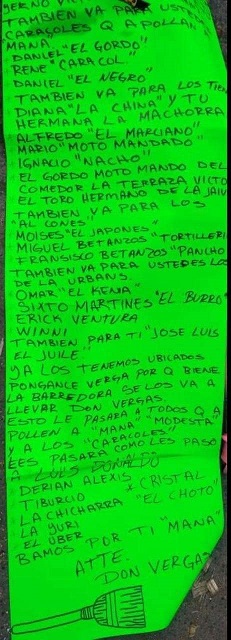 YERNO VIC
TAMBIEN VA PARA USTE
CARACOLES Q APOLLAN
MANA.
DANIEL "EL GORDO"
RENE "CARACOL"
DANIEL "EL NEGRO"
TAMBIEN VA PARA LOS TIEN
DIANA "LA CHINA" y TU
HERMANA LA MACHORRA
ALFREDO "EL MARCIANO"
MARIO "MOTO MANDADO"
IGNACIO "NACHO"
EL GORDO MOTO MANDO DEL
COMEDOR LA TERRAZA VICTO
EL TORO HERMANO DE LA JAIV
TAMBIEN VA PARA LOS
"ALCONES"
MOISES "EL JAPONES"
MIGUEL BETANZOS "TORTILLERI
FRANSISCO BETANZOS "PANCHO
TAMBIEN VA PARA USTEDES LOS
DE LA URBANS.
OMAR "EL KENIA"
SIXTO MARTINES "EL BURRO"
ERICK VENTURA
WINNI
TAMBIEN PARA TI "JOSE LUIS
EL JUILE"
YA LOS TENEMOS UBICADOS
PONGANCE VERGA POR Q BIENE
LA BARREDORA SE LOS VA A
LLEVAR DON VERGAS.
ESTO LE PASARA A TODOS Q A
POLLEN A "MANA" "MODESTA"
y A LOS "CARACOLES"
LES PASARA COMO LES PASO
A LUIS DONALDO
DERIAN ALEXIS
TIBURCIO * CRISTAL
LA CHICHARRA "EL CHOTO"
LA YURI
EL UBER
BAMOS POR TI "MANA"
ATTE.
DON VERGAS